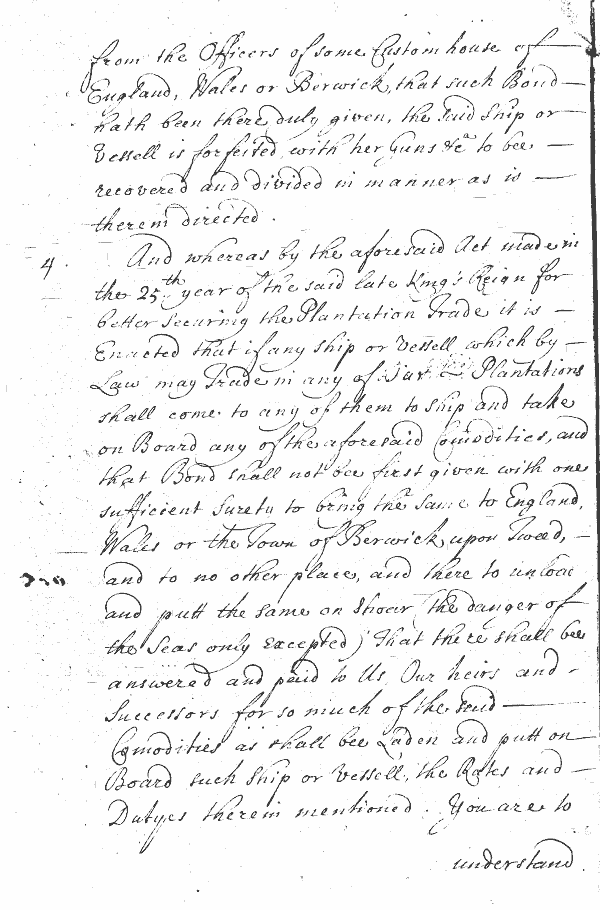 from the Officers of some Custom house of
England, Wales or Berwick, that such Bond
hath been there duly given, the said Ship or
Vessell is forfeited with her Guns &ca to bee
recovered and divided in manner as is
therein directed.
4. And whereas by the aforesaid Act made in
the 25th year of the said late King's Reign for
better Securing the Plantation Trade it is
Enacted that if any ship or Vessell which by
Law may Trade in any of Plantations
shall come to any of them to ship and take
on Board any of the aforesaid Comodities, and
that Bond shall not bee first given with one
sufficient Surety to bring the same to England,
Wales or the Town of Berwick upon Tweed,
and to no other place, and there to unload
and putt the same on Shoar (the danger of
the Seas only Excepted) That there shall bee
answered and paid to Us, Our heirs and
Successors for so much of the said
Comodities as shall bee Laden and putt on
Board such Ship or Vessell, the Rates and
Dutyes therein mentioned. You are to
understand